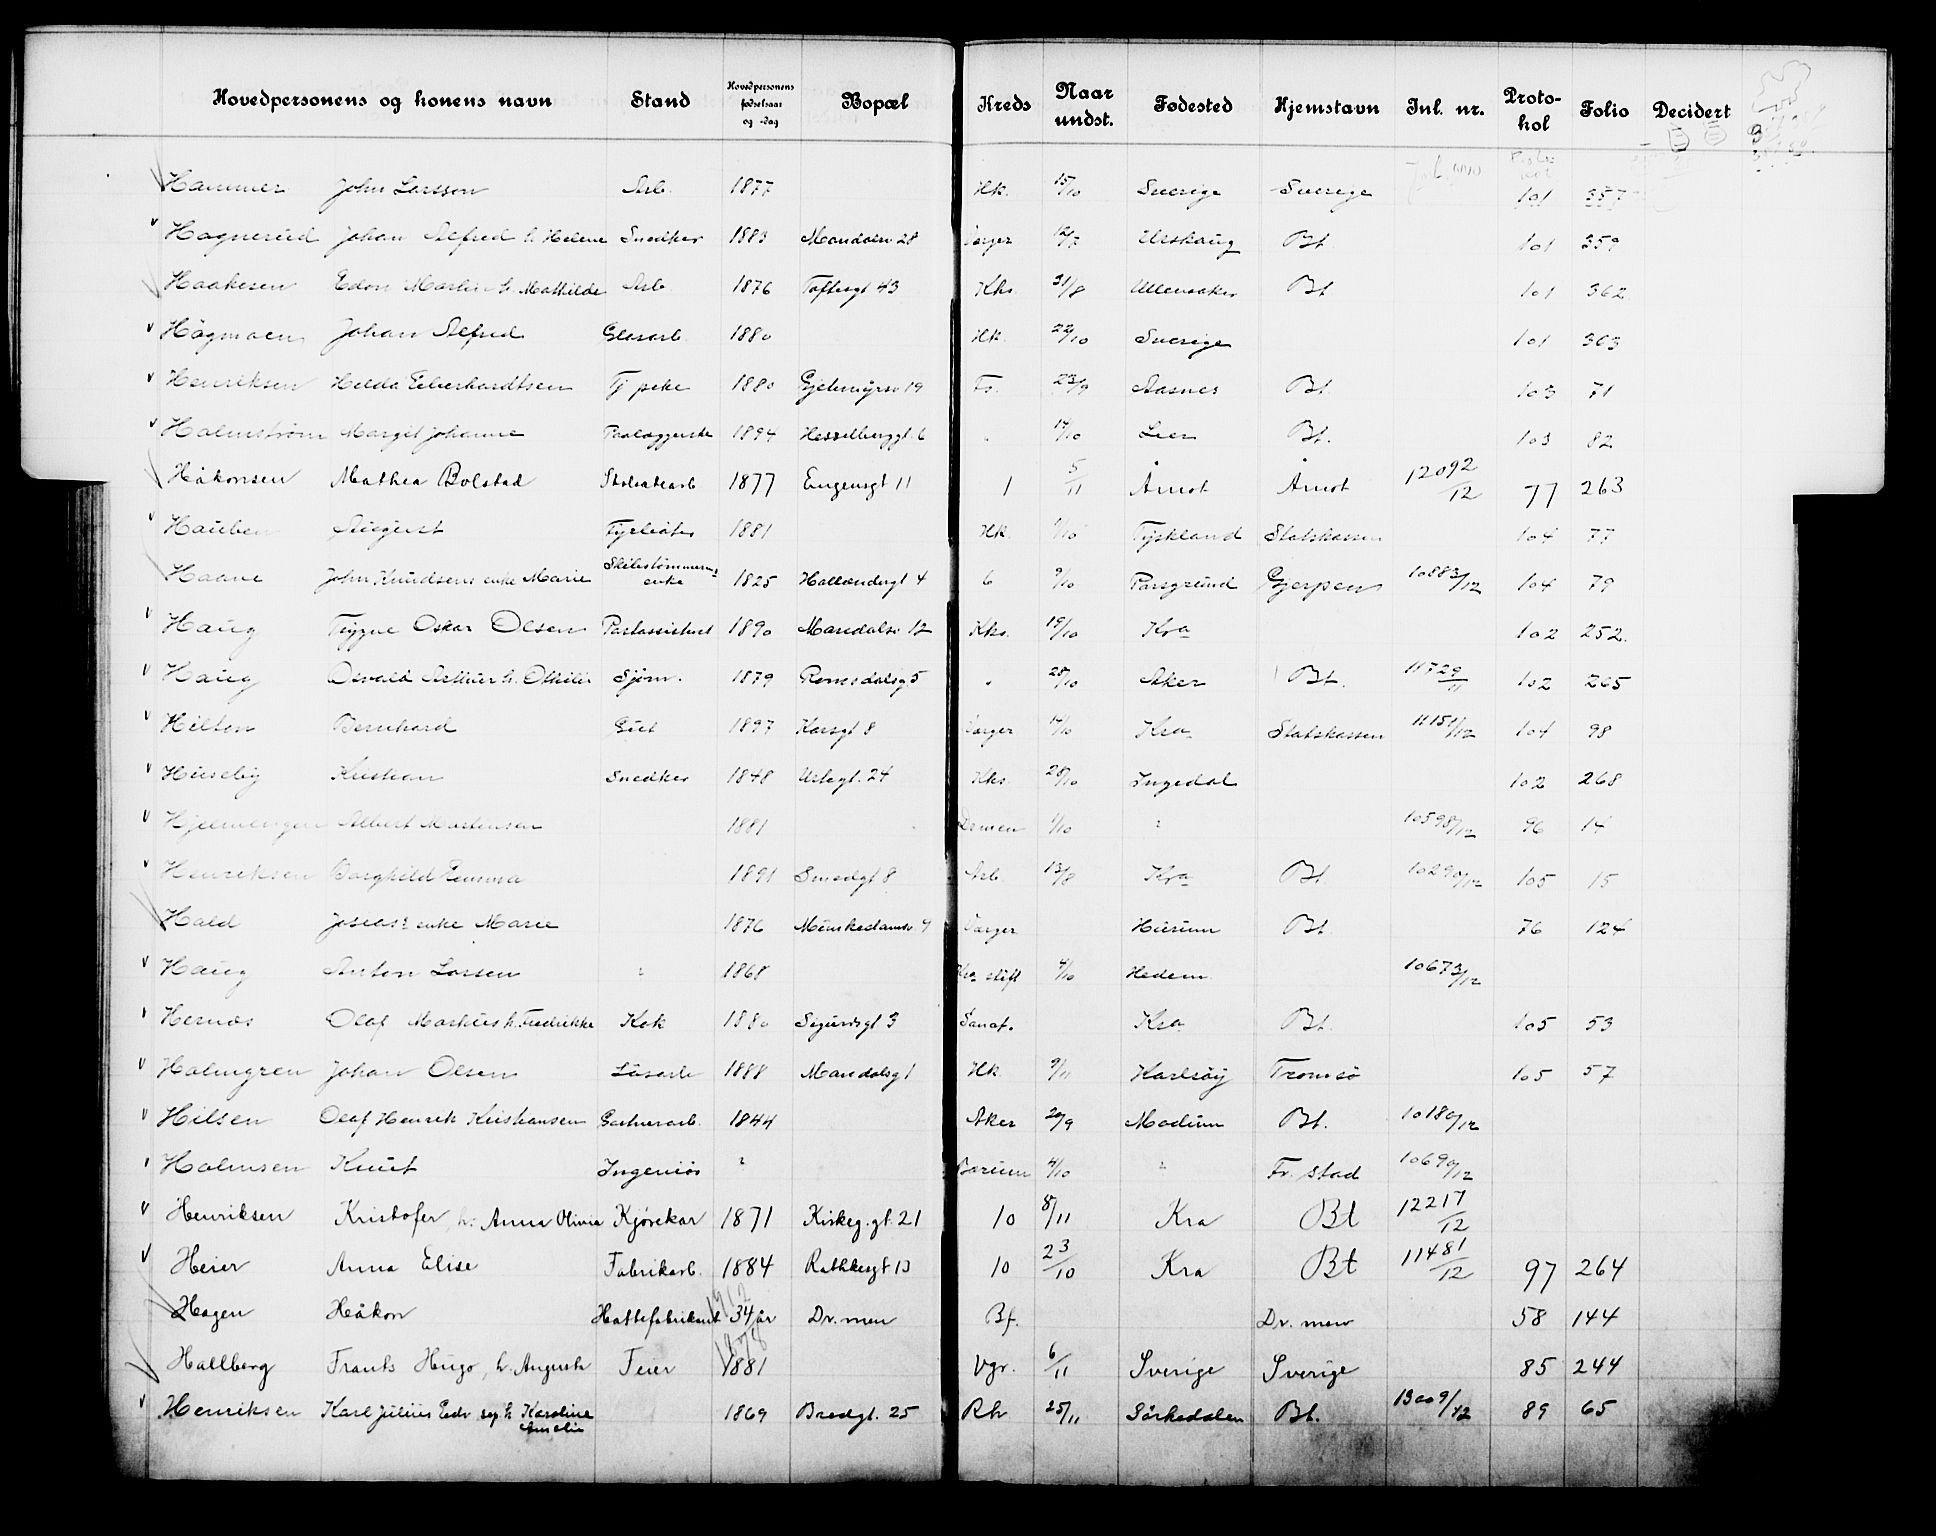 Hovedpersonens og konens navn Stand Hovedpersonens fødselsaar og -dag Bopæl Kreds Naar undst. Fødested Hjemstavn Inl. nr. Protokol Folio Decidert
Hammer John Larsson Arb. 1877 Hk. 15/10 Sverige Sverige 101 357
Hagnerud Johan Alfred h. Helene Snedker 1883 Maridalsv 28 Varger 12/7 Urskaug Bt. 101 359
Haakesen Edon Martin h. Mathilde Arb. 1876 Toftesgt 43 Kks. 31/8 Ullensaker Bt 101 362
Högmoen Johan Alfred Glasarb. 1880 Hk. 22/10 Sverige 101 363
Henriksen Hilda Eberhardtsen Tj pike 1880 Gjetemyrsv 19 Fr. 23/9 Aasnes Bt. 103 71
Halmstrøm Margit Johanne Paalæggerske 1894 Hesselberggt. 6 " 14/10 Lier Bt. 103 82
Håkonsen Mathea Bolstad Skolearb 1877 Eugensgt 11 1 5/11 Åmot Åmot 12092/12 77 263
Hauben August Fyrbøter 1881 Hk. 9/10 Tyskland Statskassen 104 77
Haane John Knudsens enke Marie Skibstømmerm. enke 1825 Hallendsgt 4 6 9/10 Porsgrund Gjerpen 10883/12 104 79
Haug Trygve Oskar Olsen Postassistent 1890 Maridalsv 12 Kks. 19/10 Kra 102 252.
Haug Osvald Arthur h. Othilie Sjøm. 1879 Romsdalsg 5 " 28/10 Aker Bt. 11729/11 102 265
Hilton Bernhard Gut 1897 Korsgt 8 Varger 14/10 Kra Statskassen 11151/12 104 98
Huseby Kristian Snedker 1848 Urtegt. 24 Kks. 28/10 Ingedal 102 268
Hjelmengen Albert Martinsen 1881 Drmen 1/10 ? 10598/12 96 14
Henriksen Borghild Emma 1891 Smedgt 8 Arb. 13/8 Kra Bt 10290/12 105 15
Hald Josias? enke Marie 1876 Munkedamsv. 9 Varger Hurum Bt. 76 124
Haug Anton Larsen ? 1868 Kra stift 4/10 Hedem. 10673/12
Hernæs Olaf Markus h. Fredrikke Kok 1880 Sigurdsgt 3 Sanat. Kra Bt. 105 53
Holmgren Johan Olsen Løsarb 1888 Maridalsg 1 Hk. 9/11 Karlsöy Tromsö 105 57
Hilsen Olaf Henrik Kristiansen Gartnerarb. 1844 Aker 20/9 Modum Bt. 10180/12
Holmsen Knut Ingeniør ? Bærum 4/10 ? Fr. stad 10690/12
Henriksen Kristofer, h: Anna Olivia Kjørekar 1871 Kirkeg.gt. 21 10 8/11 Kra Bt 12217/12
Heier Anna Elise Fabrikarb. 1884 Rathkesgt 13 10 23/10 Kra Bt 11481/12 97 264
Hagen Håkon Hattefabrikant 34 år 1912 1878 Dr. men Bf. Dr. men 58 144
Hallberg Frants Hugo, h. Augusta Feier 1881 Vgr. 6/11 Sverige Sverige 85 244
Henriksen Karl Julius Edv. sep. h Karoline Amalie 1869 Bredgt. 25 Rh 25/11 Sörkedalen Bt. 13009/12 89 65